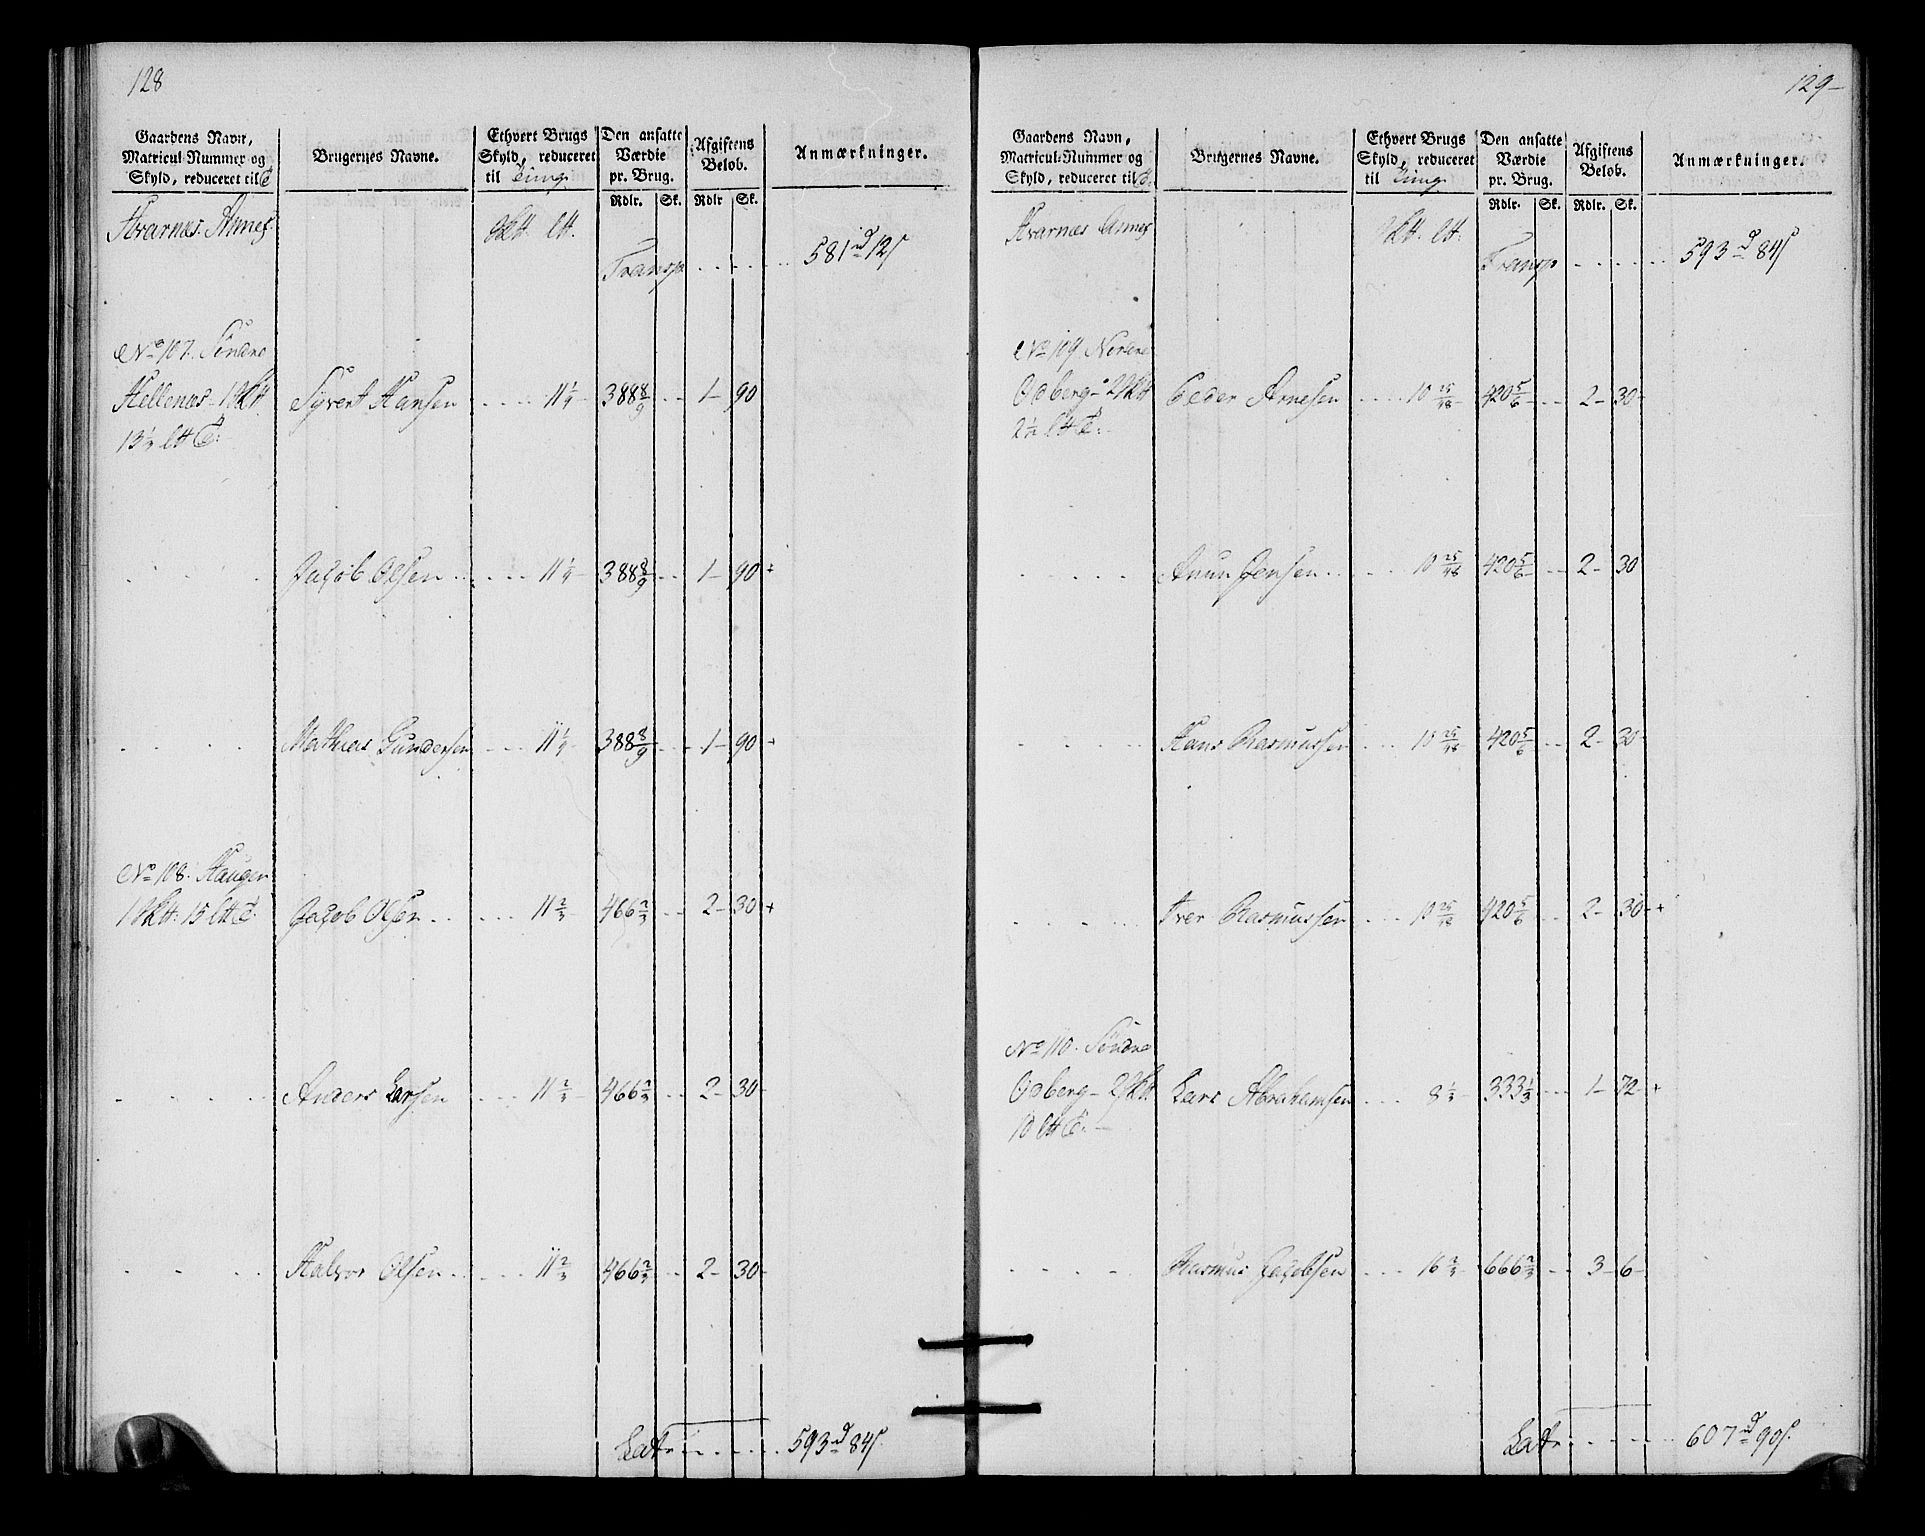 128
Gaardens Navn, Matricul-Nummer og Skyld, reduceret til
Brugernes Navne.
Ethvert Brugs Skyld, reduceret til Tung
Den ansatte Værdie pr. Brug.
Afgiftens Beløb.
Anmærkninger.
Rdlr. Sk. Rdlr Sk.
Hvarnæs Annex
Transp . . . . . 581 d 12 s
No 107. Söndre
Hellenæs
Syvert Hansen . . . . 11 1/9 - 388 8/9 - - 1 - 90
Jacob Olsen . . . . 11 1/9 - 388 8/9 - - 1 - 90 +
Mathias Gundersen - - - 11 1/9 - 388 8/9 - - 1 - 90 +
No 108. Hauger
Jacob Olsen . . . . 11 2/3 - 466 2/3 - - 2 - 30 +
Anders Larsen . . . . 11 2/3 - 466 2/3 - - 2 - 30 -
Halvor Olsen . . . . 11 2/3 - 466 2/3 - - 2 - 30 -
Latr . . . . . 593 d 84 s.
129 -
Gaardens Navn, Matricul-Nummer og Skyld, reduceret til
Brugernes Navne.
Ethvert Brugs Skyld, reduceret til Tung
Den ansatte Værdie pr. Brug.
Afgiftens Beløb.
Anmærkninger.
Rdlr. Sk. Rdlr. Sk.
Hvarnæs Annex
Transp . . . . . 593 d 84 s
No 109 Nordre
Odberg
Peder Arnesen . . . . 10 25/48 - 420 5/6 - - 2 - 30 -
Anun Jensen . . . . 10 25/48 420 5/6 - - 2 - 30
Hans Rasmussen . . . 10 25/48 - 420 5/6 - - 2 - 30 -
Iver Rasmussen . . . 10 25/48 420 5/6 - - 2 - 30 +
No 110. Söndre
Odberg
Lars Abrahamsen . . . 8 1/3 - 333 1/3 - - 1 - 72 +
Rasmus Jacobsen . . . 16 2/3 - 666 2/3 - - 3 - 6 -
Latr . . . . . 607 d 90 s.